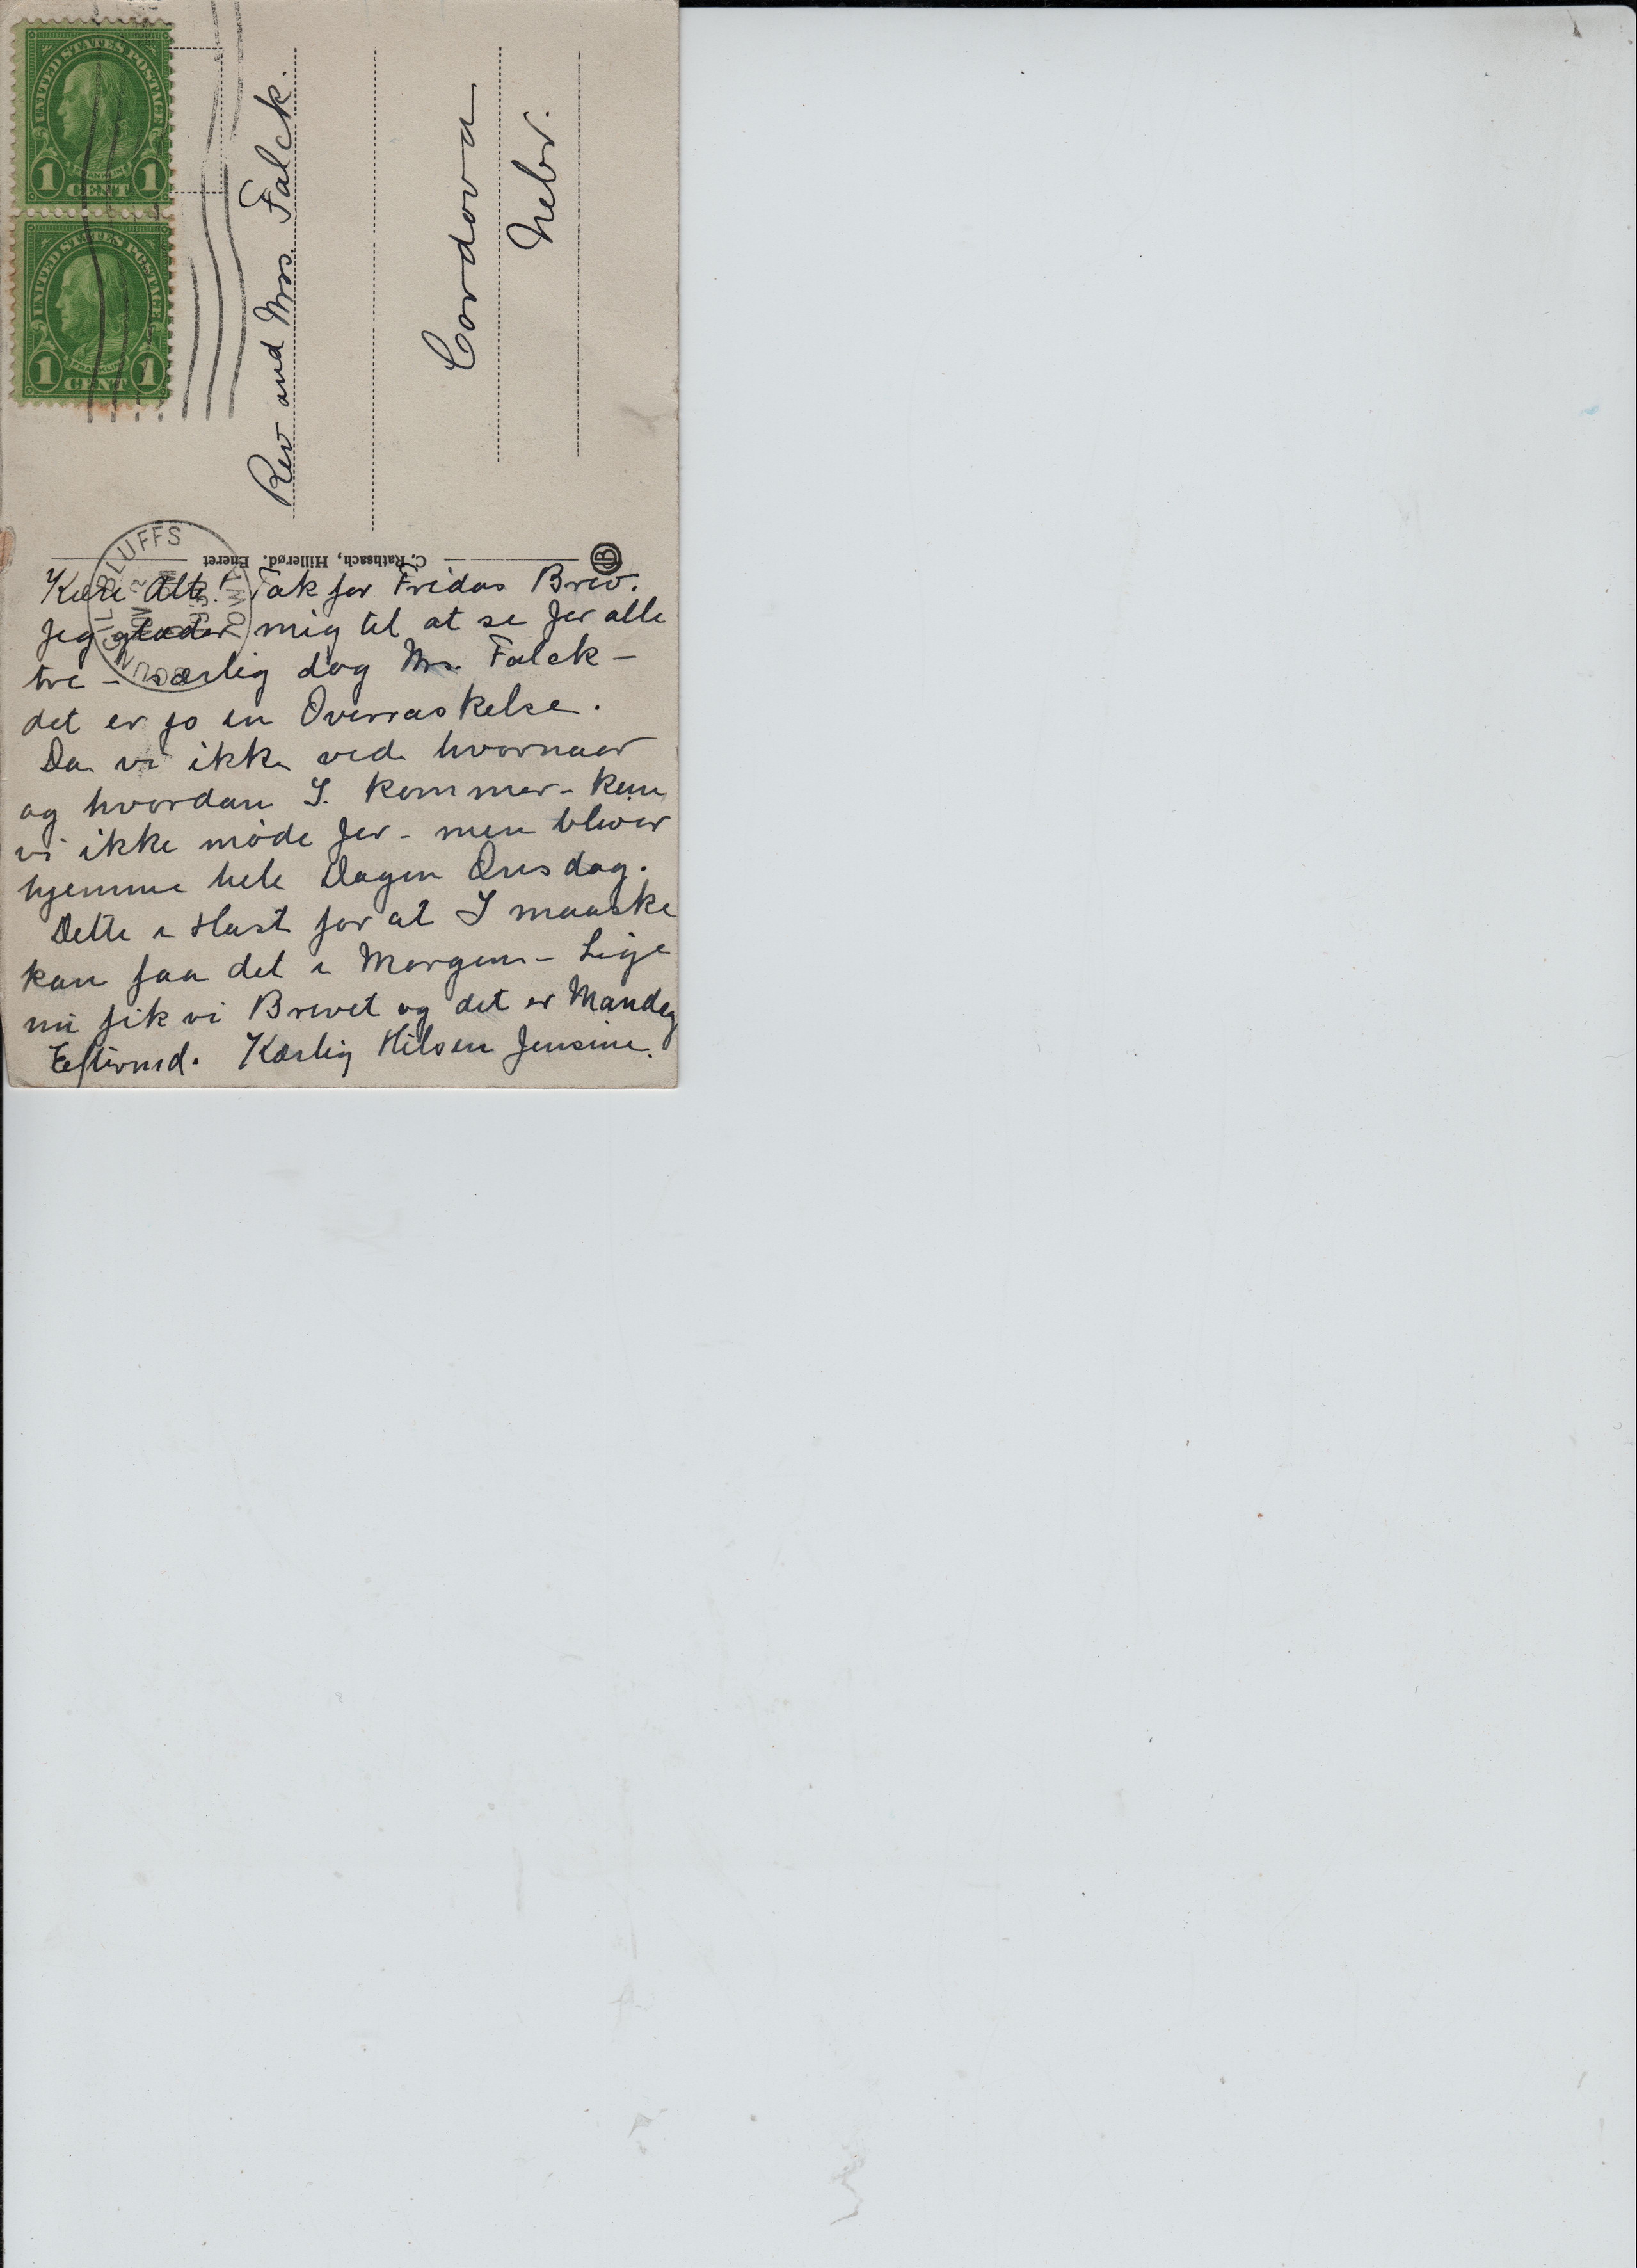 UNITED STATES POSTAGE
FRANKLIN
1 CENT 1
UNITED STATES POSTAGE
FRANKLIN
1 CENT 1
Rev and Mrs. Falck.
Cordova
Nebr.
COUNCIL BLUFFS
NOV 2
IOWA
C. Rathsach, Hillerød. Eneret
Kære Alle! Tak for Fridas Brev.
Jeg glæder mig til at se Jer alle
tre – særlig dog Mrs. Falck –
det er jo en Overraskelse.
Da vi ikke ved hvornaar
og hvordan I. kommer – kan
vi ikke møde Jer – men bliver
hjemme hele Dagen Onsdag.
Dette i Hast for at I maaske
kan faa det i Morgen – Lige
nu fik vi Brevet og det er Mandag
Eftermd. Kærlig Hilsen Jensine.